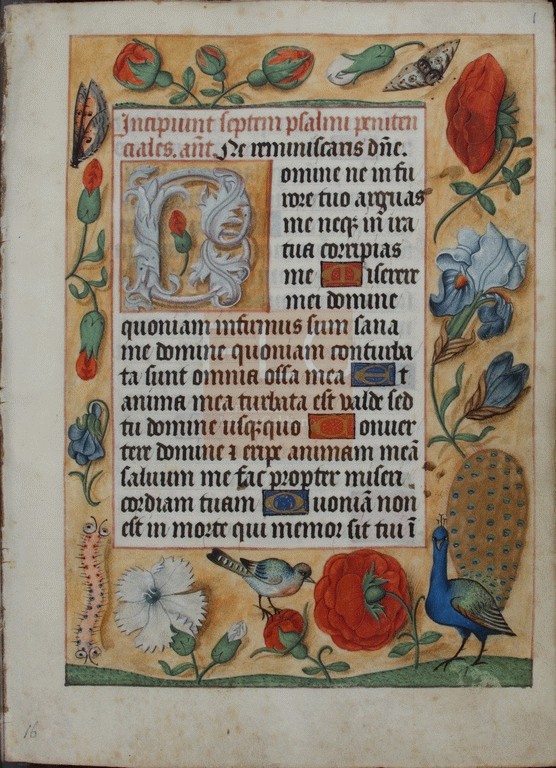 Incipiunt septem psalmi peniten
ciales. ant̄. Ne reminiscaris dn̄e.
Domine ne in fu
rore tuo arguas
me neqꝫ in ira
tua corripias
me Miserere
mei domine
quoniam infirmus sum sana
me domine quoniam conturba
ta sunt omnia ossa mea Et
anima mea turbata est valde sed
tu domine usqꝫquo Conuer
tere domine ⁊ eripe animam meā
saluum me fac propter miseri
cordiam tuam Quoniā non
est in morte qui memor sit tui ī
16